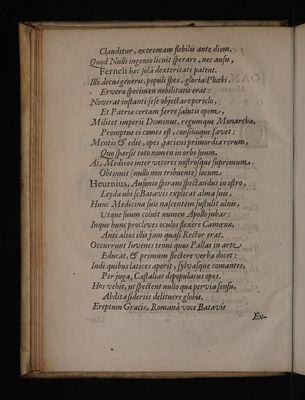 Clauditur, extremam flebilis ante diem.
Quod Nulli ingenio licuit sperare, nec ausu,
Ferneli hec solâ dexteritate patent.
Ille decus generis, populi spes, gloria Phœbi,
Et vera specimen nobilitatis erat:
Noverat instanti sese objectare periclo,
Et Patria certam ferre salutis opem,
Militet imperiis Dominus, regumque Monarcha,
Promptus ei comes est, consilioque favet:
Mentis & edit, opes, jaciens primordia rerum,
Quo sparsit toto nomen in orbe suum.
At, Medicos inter veteres nostrosque supremum,
Obtinuit (nullo non tribuente) locum.
Heurnius, Ausonio spirans spectandus in ostro,
Leyda ubi se Batavis explicat alma suis,
Hunc Medicina suis nascentem sustulit ulnis,
Utque suum coluit numen Apollo jubar:
Inque hunc proclives oculos flexere Camœna,
Ante alios illis jam quasi Rector erat.
Occurrunt Iuvenes tenui quos Pallas in arte
Educat, & primum flectere verba docet:
Inde quibus latices aperit, sylvasque comantes,
Per juga, Castalias depopulatus opes.
Hos vehit, ut spectent nullo quæ pervia sensu,
Abdita sidereis delituere globis.
Ereptum Grais, Romanâ voce Batavis
Ex-